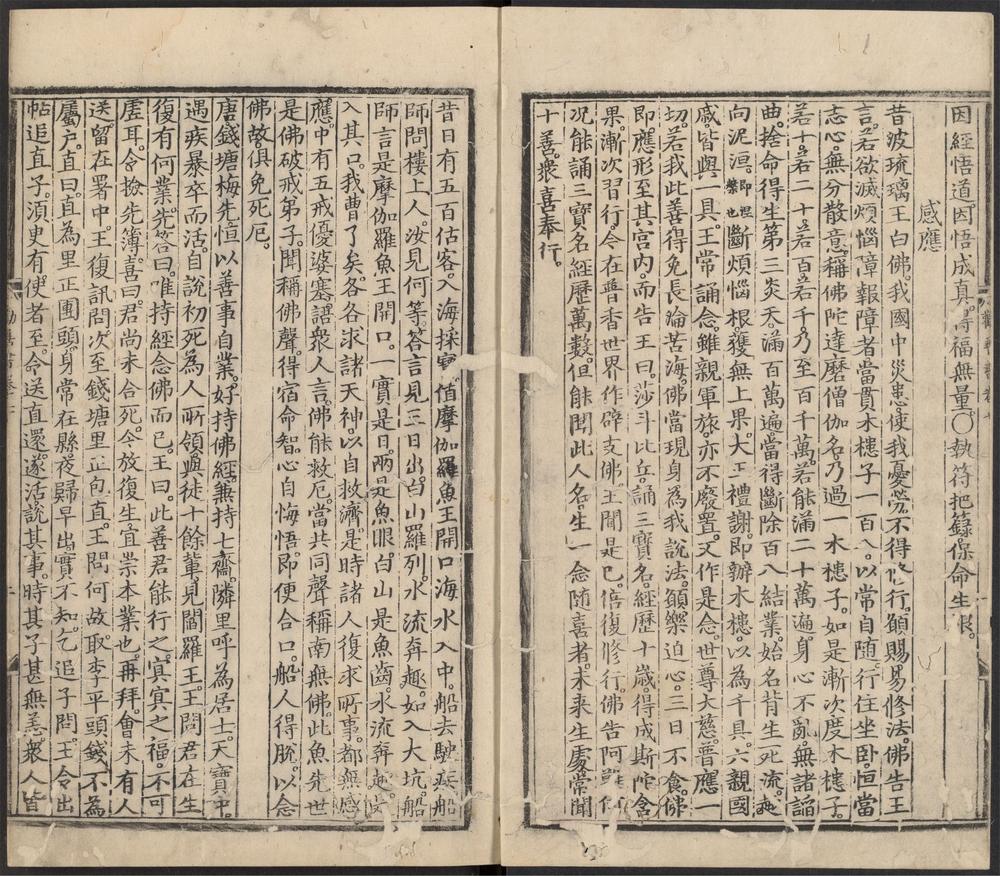 因經悟道因悟成真得福無量○執符把籙保命生根
感應
昔波琉璃王白佛我國中災患使我憂勞不得修行願賜易修法佛告王
言若欲滅煩惱障報障者當貫木槵子一百八以常自隨行往坐卧恒當
志心無分散意稱佛陀達磨僧伽名乃過一木槵子如是漸次度木槵子
若十若二十若百若千乃至百千萬若能滿二十萬遍身心不亂無諸諂
曲捨命得生第三炎天滿百萬遍當得斷除百八結業始名背生死流趣
向泥洹即涅槃也斷煩惱根獲無上果大王禮謝即辦水槵以為千具六親國
戚皆與一具王常誦念雖親軍旅亦不廢置又作是念世尊大慈普應一
切若我此善得免長淪苦海佛當現身為我說法願樂迫心三日不食佛
即應形至其宮内而告王曰莎斗比丘誦三寶名經歷十歲得成斯陀含
果漸次習行今在普香世界作辟支佛王聞是已倍復修行佛告阿難何
况能誦三寶名經歷萬數但能聞此人名生一念随喜者未来生處常聞
十善衆喜奉行
昔日有五百估客入海採寶值摩伽羅魚王開口海水入中船去駛疾船
師問樓上人汝見何等答言見三日出白山羅列水流奔趣如入大坑船
師言是摩伽羅魚王開口一實是日兩是魚眼白山是魚齒水流奔趣
入其口我曹了矣各各求諸天神以自救濟是時諸人復求所事都無感
應中有五戒優婆塞語衆人言佛能救厄當共同聲稱南無佛此魚先世
是佛破戒弟子聞稱佛聲得宿命智心自悔悟即便合口船人得脫以念
佛故俱免死厄
唐錢塘梅先恒以善事自業好持佛經兼持七齋隣里呼為居士天寶中
遇疾暴卒而活自說初死為人所領與徒十餘輩見閻羅王王問君在生
復有何業先答曰唯持經念佛而已王曰此善君能行之冥冥之福不可
虗耳令撿先簿喜曰君尚未合死今放復生宜崇本業也再拜會未有人
送留在署中王復訊問次至錢塘里正包直王問何故取李平頭錢不為
屬户直曰直為里正團頭身常在縣夜歸早出實不知乞追子問王令出
帖追直子須史有使者至令送直還遂活說其事時其子甚無恙衆人皆